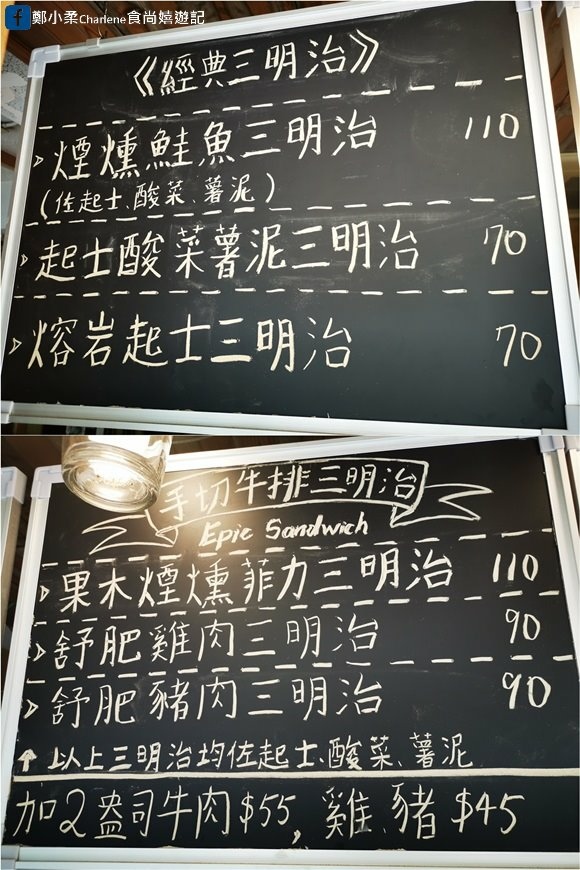 鄭小柔Charlene食尚嬉遊記
《經典三明治》
煙燻鮭魚三明治 110
(佐起士、酸菜、薯泥)
起士酸菜薯泥三明治 70
熔岩起士三明治 70
手切牛排三明治
Epic Sandwich
果木煙燻菲力三明治 110
舒肥雞肉三明治 90
舒肥豬肉三明治 90
↑ 以上三明治均佐起士、酸菜、薯泥
加2盎司牛肉$55, 雞、豬$45